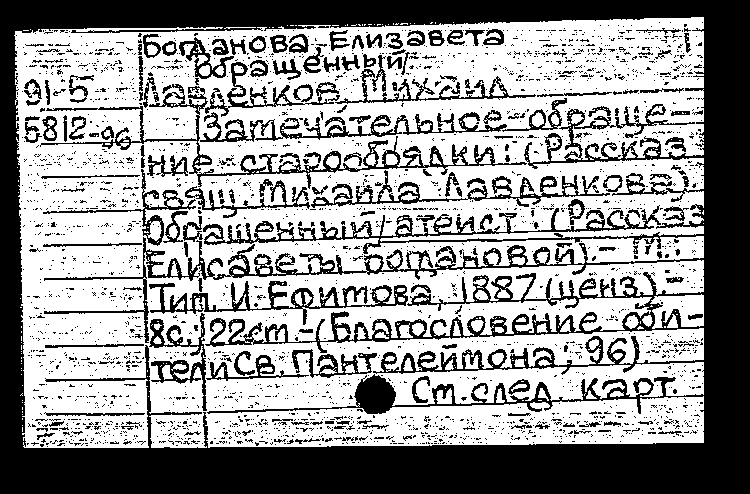 Богданова, Елизавета
Обращенный
91-5 Лавденков, Михаил
5812-96 Замечательное обраще-
ние старообрядки: (Рассказ
свящ. Михаила Лавденкова).
Обращенный атеист: (Рассказ
Елисаветы Богдановой).- М.:
Тип. И. Ефимова, 1887 (ценз.).-
8с.; 22см.-(Благословение оби-
тели Св. Пантелеймона; 96)
См. след. карт.